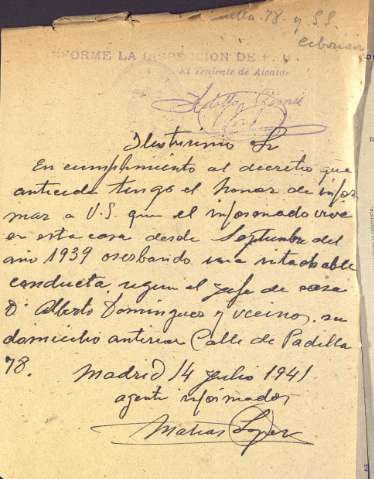 78 - y S.S.
FORME LA
El Teniente de Alcalde
Ilustrisimo Sr
En cumplimiento al decreto que
antecede tengo el honor de infor
mar a V.S. que el informado vive
en esta casa desde Septumbre del
año 1939 oscerbando una intachable
conducta, segun el jefe de casa
D. Alberto Dominguez y vecinos, su
domicilio anterior Calle de Padilla
78.
Madrid 14 julio 1941
agente informador
Matias Lopez